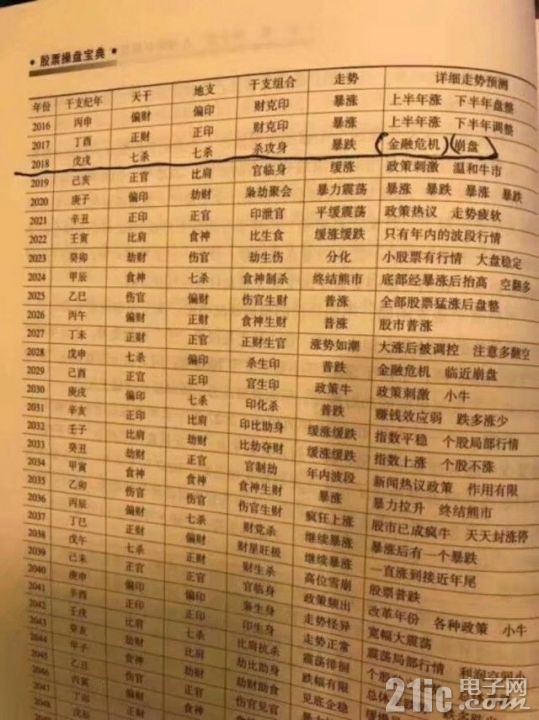 • 股票操盘宝典 •
年份 干支纪年 天干 地支 干支组合 走势 详细走势预测
2016 丙申 偏财 偏印 财克印 暴涨 上半年涨 下半年盘整
2017 丁酉 正财 正印 财克印 暴涨 上半年涨 下半年调整
2018 戊戌 七杀 七杀 杀攻身 暴跌 金融危机 崩盘
2019 己亥 正官 比肩 官临身 缓涨 政策刺激 温和牛市
2020 庚子 偏印 劫财 枭劫聚会 暴力震荡 暴涨 暴跌 暴涨 暴跌
2021 辛丑 正印 正官 印泄官 平缓震荡 政策热议 走势疲软
2022 壬寅 比肩 食神 比生食 缓涨缓跌 只有年内的波段行情
2023 癸卯 劫财 伤官 劫生伤 分化 小股票有行情 大盘稳定
2024 甲辰 食神 七杀 食神制杀 终结熊市 底部经暴涨后抬高 空翻多
2025 乙巳 伤官 偏财 伤官生财 普涨 全部股票猛涨后盘整
2026 丙午 偏财 正财 食神生财 普涨 股市普涨
2027 丁未 正财 正官 正财生官 涨势如潮 大涨后被调控 注意多翻空
2028 戊申 七杀 偏印 杀生印 普跌 金融危机 临近崩盘
2029 己酉 正官 正印 官生印 政策牛 政策刺激 小牛
2030 庚戌 偏印 七杀 印化杀 普跌 赚钱效应弱 跌多涨少
2031 辛亥 正印 比肩 印比助身 缓涨缓跌 指数平稳 个股局部行情
2032 壬子 比肩 劫财 比劫夺财 缓涨缓跌 指数上涨 个股不涨
2033 癸丑 劫财 正官 官制劫 年内波段 新闻热议政策 作用有限
2034 甲寅 食神 食神 食神生财 暴涨 暴力拉升 终结熊市
2035 乙卯 伤官 伤官 伤官生财 疯狂上涨 股市已成疯牛 天天封涨停
2036 丙辰 偏财 七杀 财党杀 继续暴涨 暴涨后有一个暴跌
2037 丁巳 正财 偏财 财星旺极 继续暴涨 一直涨到接近年尾
2038 戊午 七杀 正财 财生杀 高位雪崩 股票普跌
2039 己未 正官 正官 官临身 政策频出 改革年份 各种政策 小牛
2040 庚申 偏印 偏印 枭生身 走势怪异 宽幅大震荡
2041 辛酉 正印 正印 印生身 走势正常 震荡局部行情
2042 壬戌 比肩 七杀 比肩抗杀 震荡徘徊
2043 癸亥 劫财 比肩 比劫助身 跌幅有限
2044 甲子 食神 见底企稳
乙丑 伤官
2046 丙寅 偏财
丁卯
2048
21ic电子网